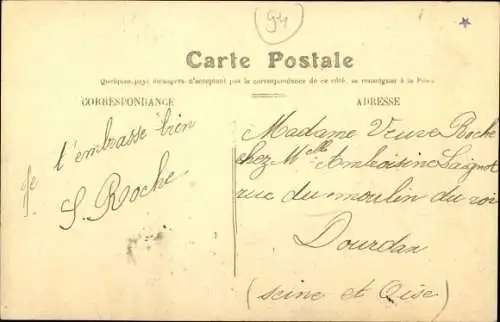 944
Carte Postale
Quelques pays étrangers n'acceptant pas la correspondance de ce côté, se renseigner à la Poste
CORRESPONDANCE
ADRESSE
Je t'embrasse bien
S. Roche
Madame Veuve Roche
chez Melle Ambroisine Saignol
rue du moulin du roi
Dourdan
(Seine et Oise)